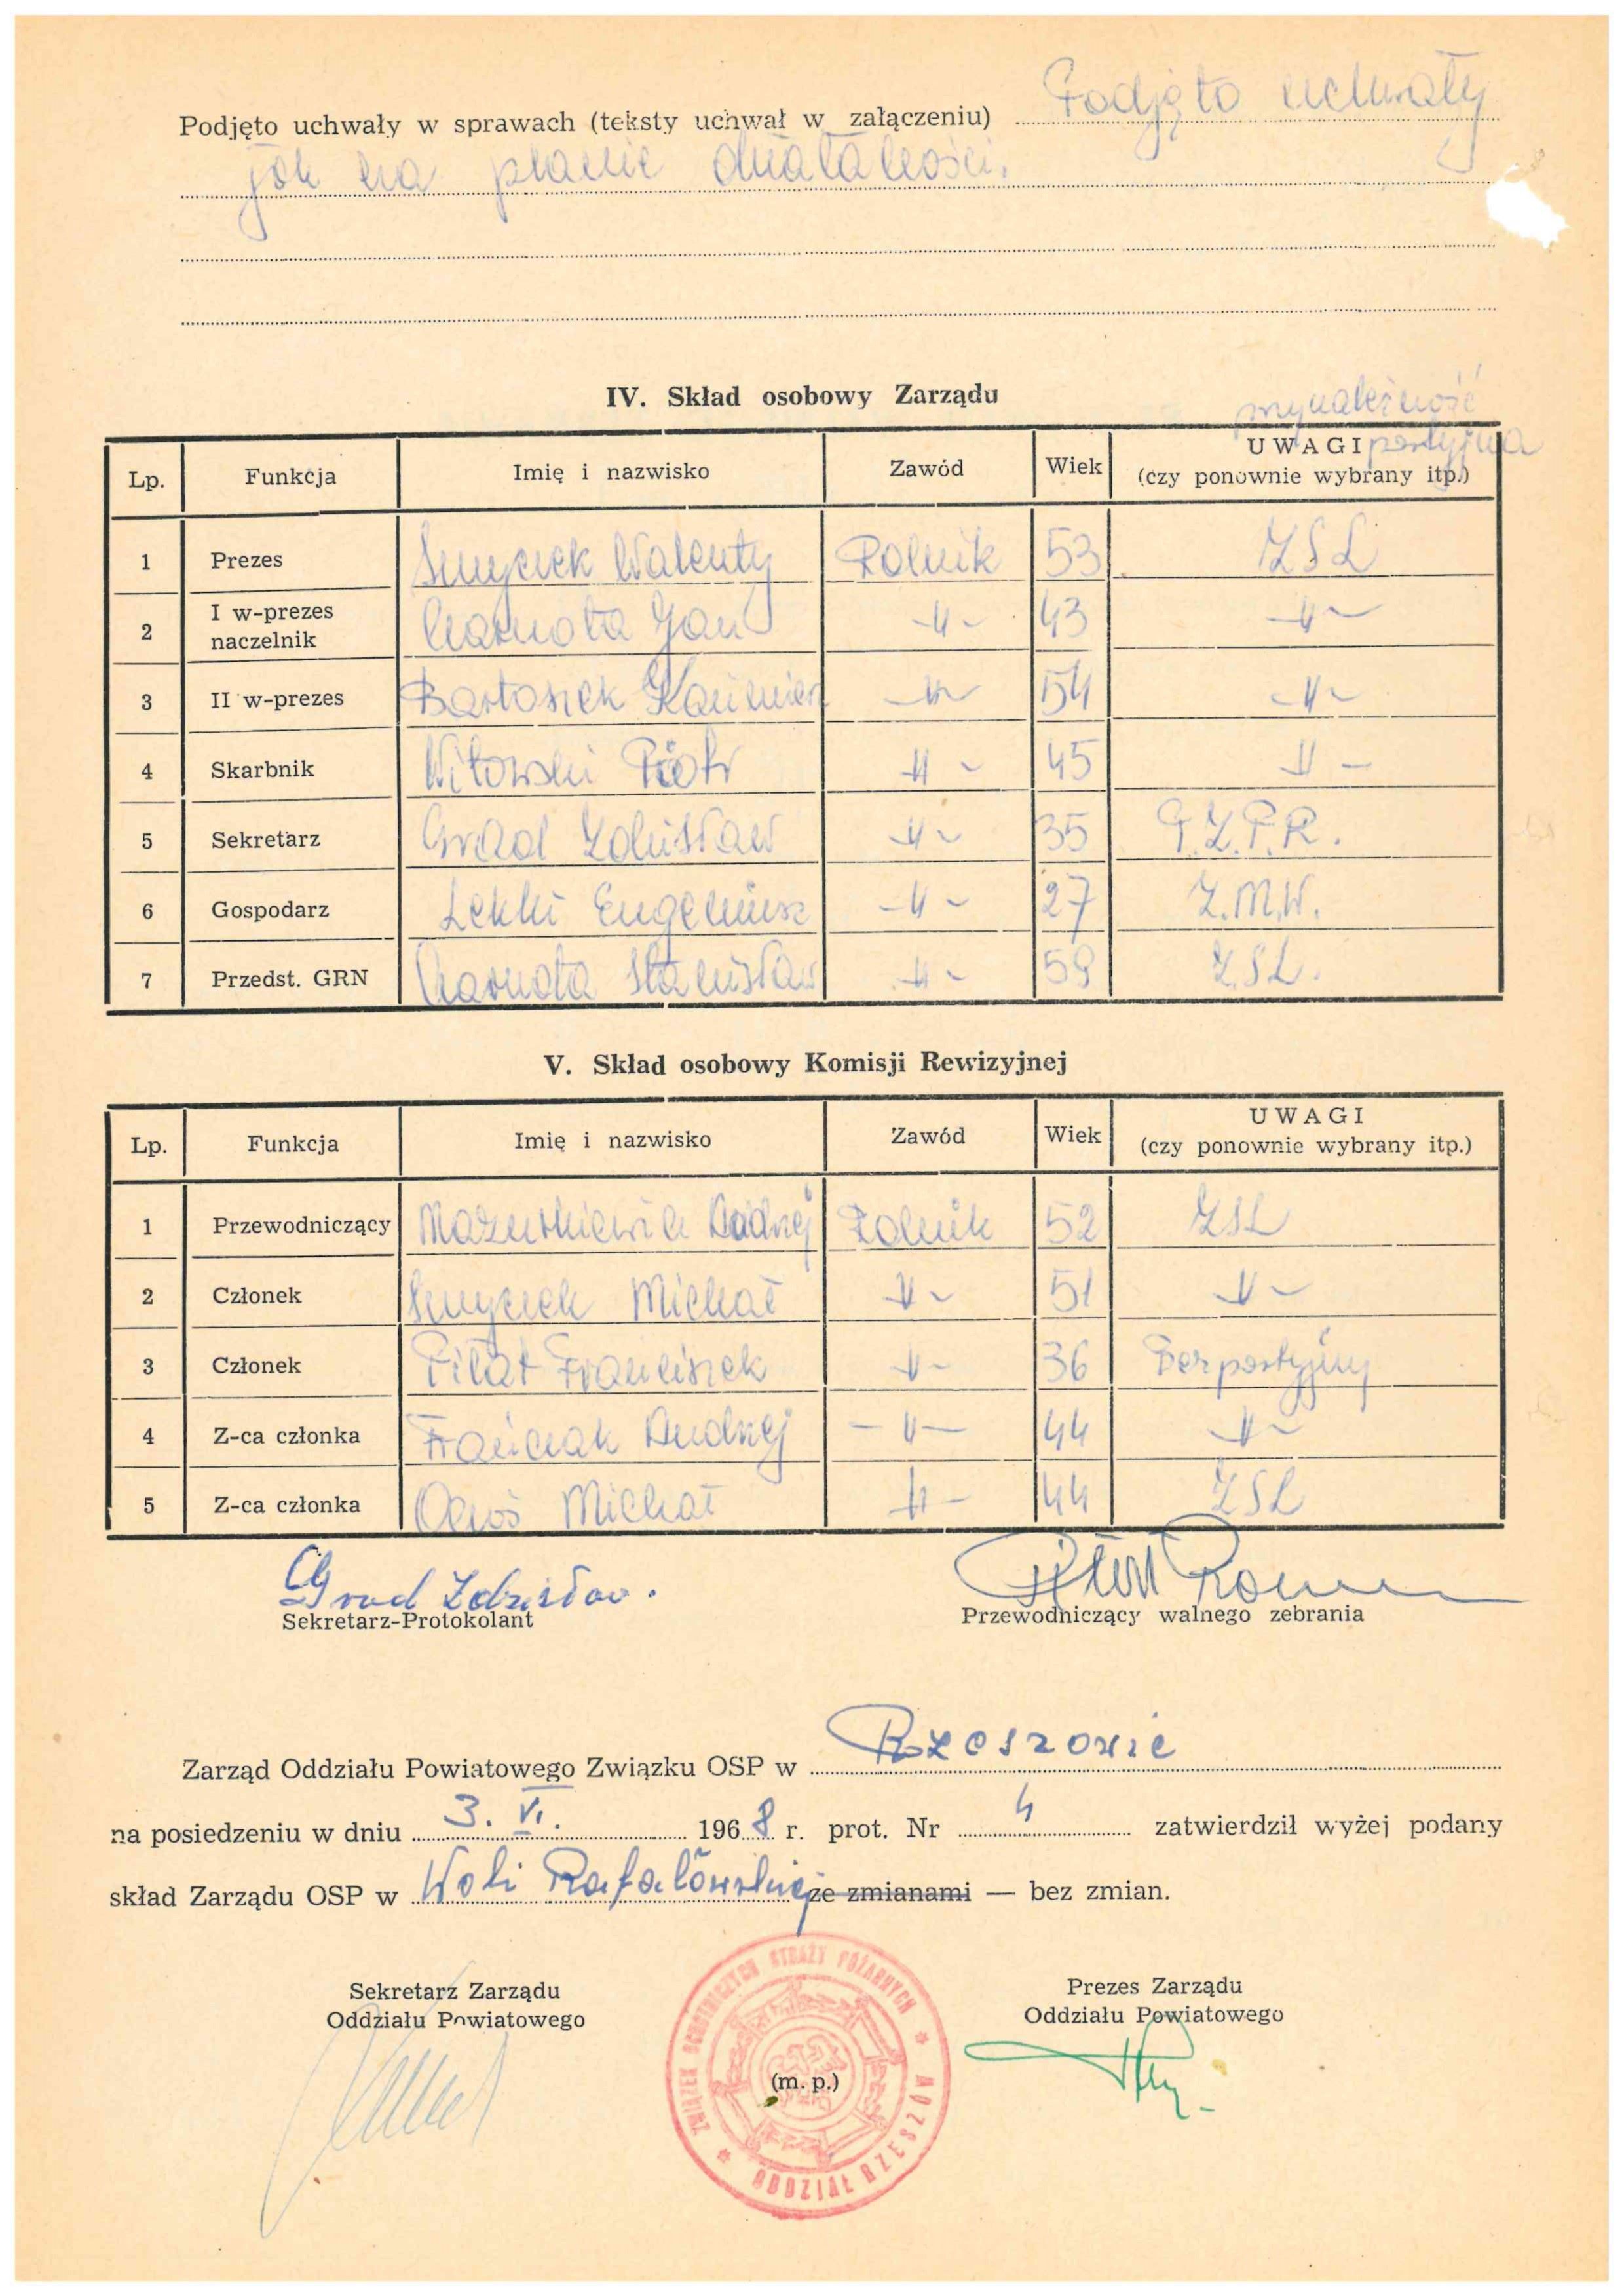 Podjęto uchwały w sprawach (teksty uchwał w załączeniu) Podjęto uchwały
jak na planie działalności.
IV. Skład osobowy Zarządu
przynależność
partyjna
Lp. Funkcja Imię i nazwisko Zawód Wiek UWAGI (czy ponownie wybrany itp.)
1 Prezes Smyczek Walenty Rolnik 53 ZSL
2 I w-prezes naczelnik Czarnota Jan -〃- 43 -〃-
3 II w-prezes Bartoszek Kazimierz -〃- 54 -〃-
4 Skarbnik Witowski Piotr -〃- 45 -〃-
5 Sekretarz Grad Zdzisław -〃- 35 P.Z.P.R.
6 Gospodarz Lekki Eugeniusz -〃- 27 Z.M.W.
7 Przedst. GRN Czarnota Stanisław -〃- 59 ZSL.
V. Skład osobowy Komisji Rewizyjnej
Lp. Funkcja Imię i nazwisko Zawód Wiek UWAGI (czy ponownie wybrany itp.)
1 Przewodniczący Mazurkiewicz Andrzej Rolnik 52 ZSL
2 Członek Smyczek Michał -〃- 51 -〃-
3 Członek Pilat Franciszek -〃- 36 Bezpartyjny
4 Z-ca członka Frańczak Andrzej -〃- 44 -〃-
5 Z-ca członka Michał -〃- 44 ZSL
Grad Zdzisław.
Sekretarz-Protokolant
Przewodniczący walnego zebrania
Zarząd Oddziału Powiatowego Związku OSP w Rzeszowie
na posiedzeniu w dniu 3. VI. 1968 r. prot. Nr 4 zatwierdził wyżej podany
skład Zarządu OSP w Woli Rafałowskiej ze zmianami — bez zmian.
Sekretarz Zarządu
Oddziału Powiatowego
Prezes Zarządu
Oddziału Powiatowego
(m. p.)
ZWIĄZEK OCHOTNICZYCH STRAŻY POŻARNYCH * ODDZIAŁ RZESZÓW *